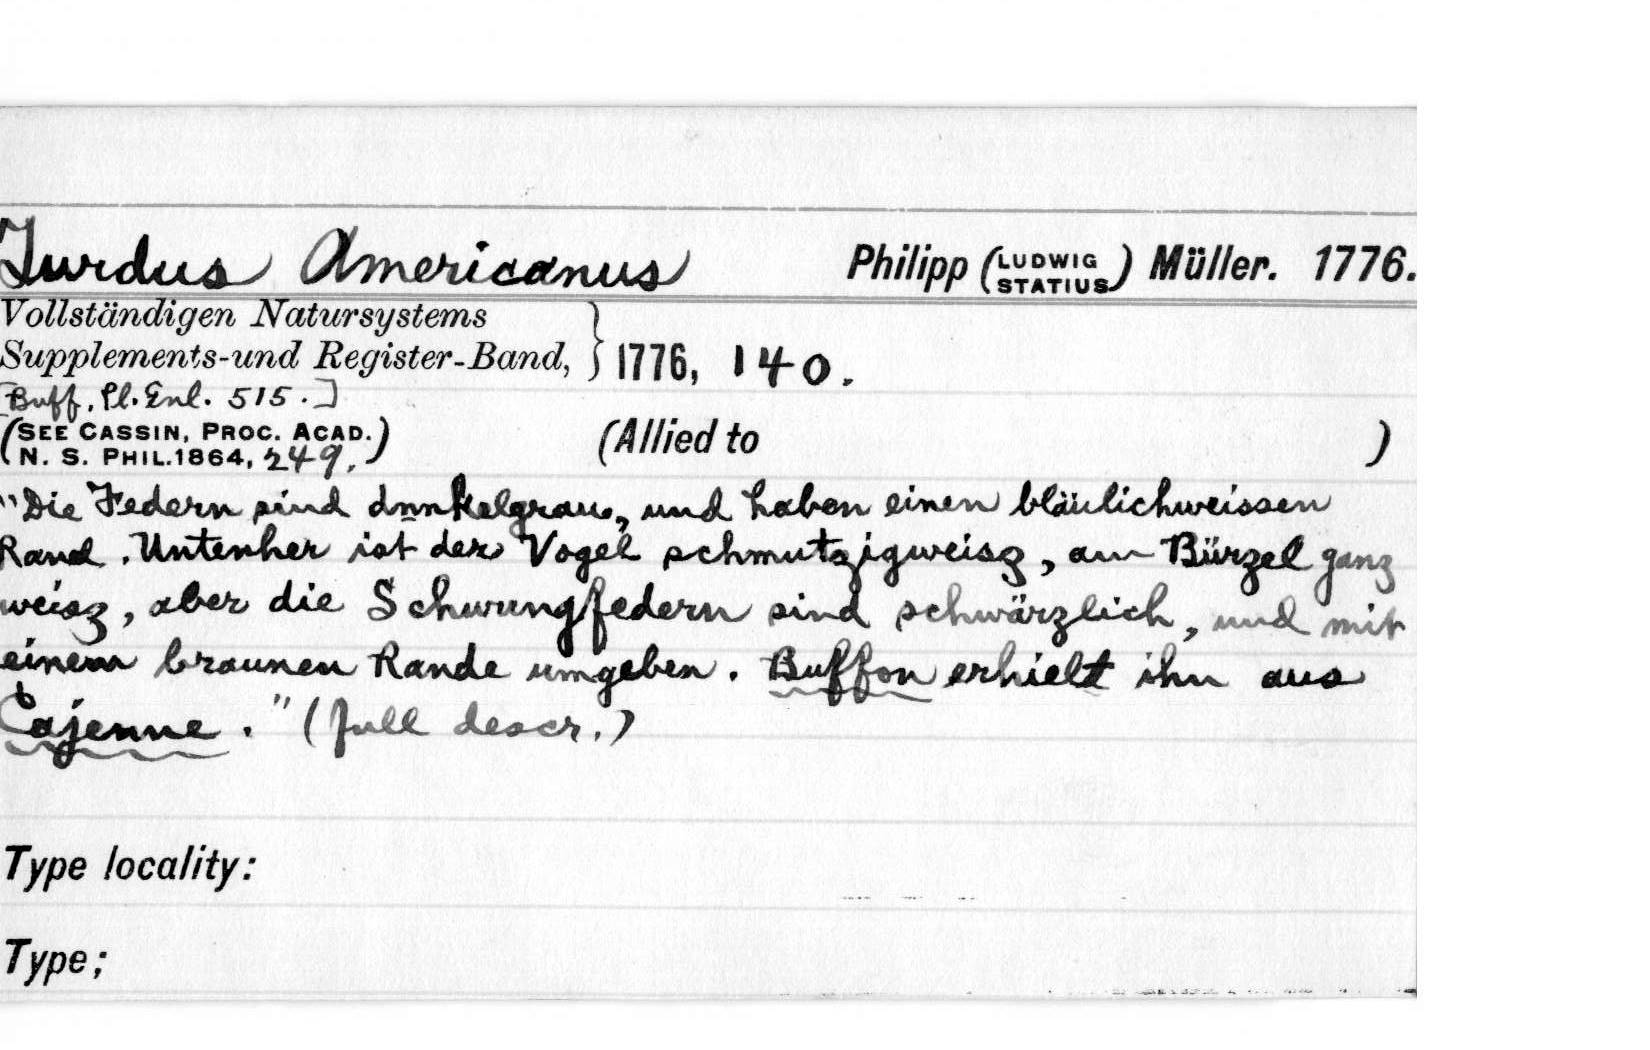 Turdus Americanus Philipp (LUDWIG STATIUS) Müller. 1776.
Vollständigen Natursystems
Supplements-und Register-Band, } 1776, 140.
[Buff. Pl. Enl. 515.]
(SEE CASSIN, PROC. ACAD. (Allied to )
N. S. PHIL. 1864, 249.)
"Die Federn sind dunkelgrau, und haben einen bläulichweissen
Rand. Untenher ist der Vogel schmutzigweisz, am Bürzel ganz
weisz, aber die Schwungfedern sind schwärzlich, und mit
einem braunen Rande umgeben. Buffon erhielt ihn aus
Cajenne." (full descr.)
Type locality:
Type;